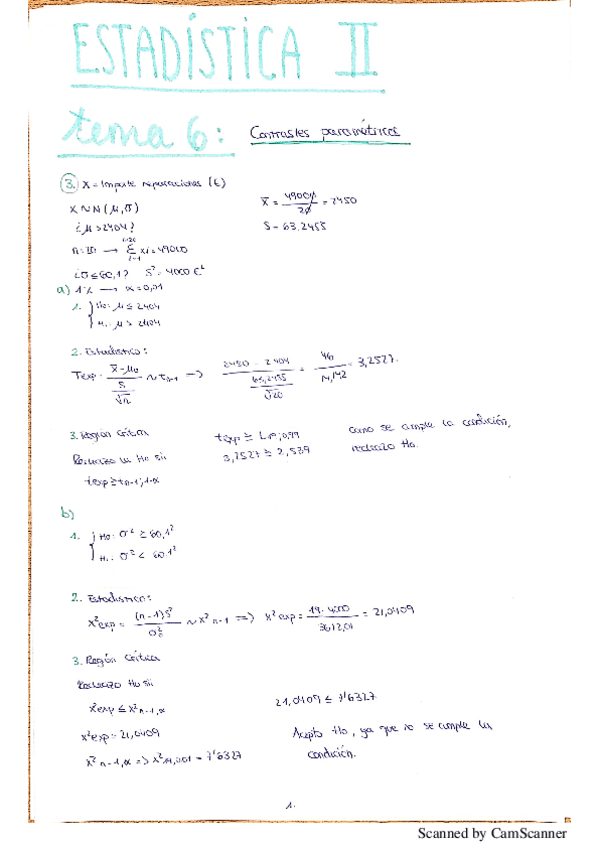 ESTADÍSTICA II
tema 6: Contrastes paramétricos
3. X = Importe reparaciones (€)
X ~ N(μ, σ)
¿μ > 2404?
n = 20 → Σ xi = 49000
i=1
¿σ ≤ 60,1? S² = 4000 €²
x̄ = 49000 / 20 = 2450
S = 63.2455
a) 1% → α = 0,01
1. { H₀: μ ≤ 2404
H₁: μ > 2404
2. Estadístico:
Texp = (x̄ - μ₀) / (S / √n) ~ tn-1 => (2450 - 2404) / (63,2455 / √20) = 46 / 14,142 = 3,2527.
3. Región Crítica
Rechazo la H₀ sii
texp ≥ tn-1; 1-α
texp ≥ t19; 0,99
3,2527 ≥ 2,539
Como se cumple la condición,
rechazo H₀.
b)
1. { H₀: σ² ≥ 60,1²
H₁: σ² < 60.1²
2. Estadístico:
χ²exp = (n-1)S² / σ₀² ~ χ² n-1 => χ²exp = 19 · 4000 / 3612,01 = 21,0409
3. Región Crítica
Rechazo H₀ sii
χ²exp ≤ χ²n-1, α
χ²exp = 21,0409
χ² n-1, α => χ²19, 0,01 = 7'6327
21,0409 ≤ 7'6327
Acepto H₀, ya que no se cumple la
condición.
1.
Scanned by CamScanner